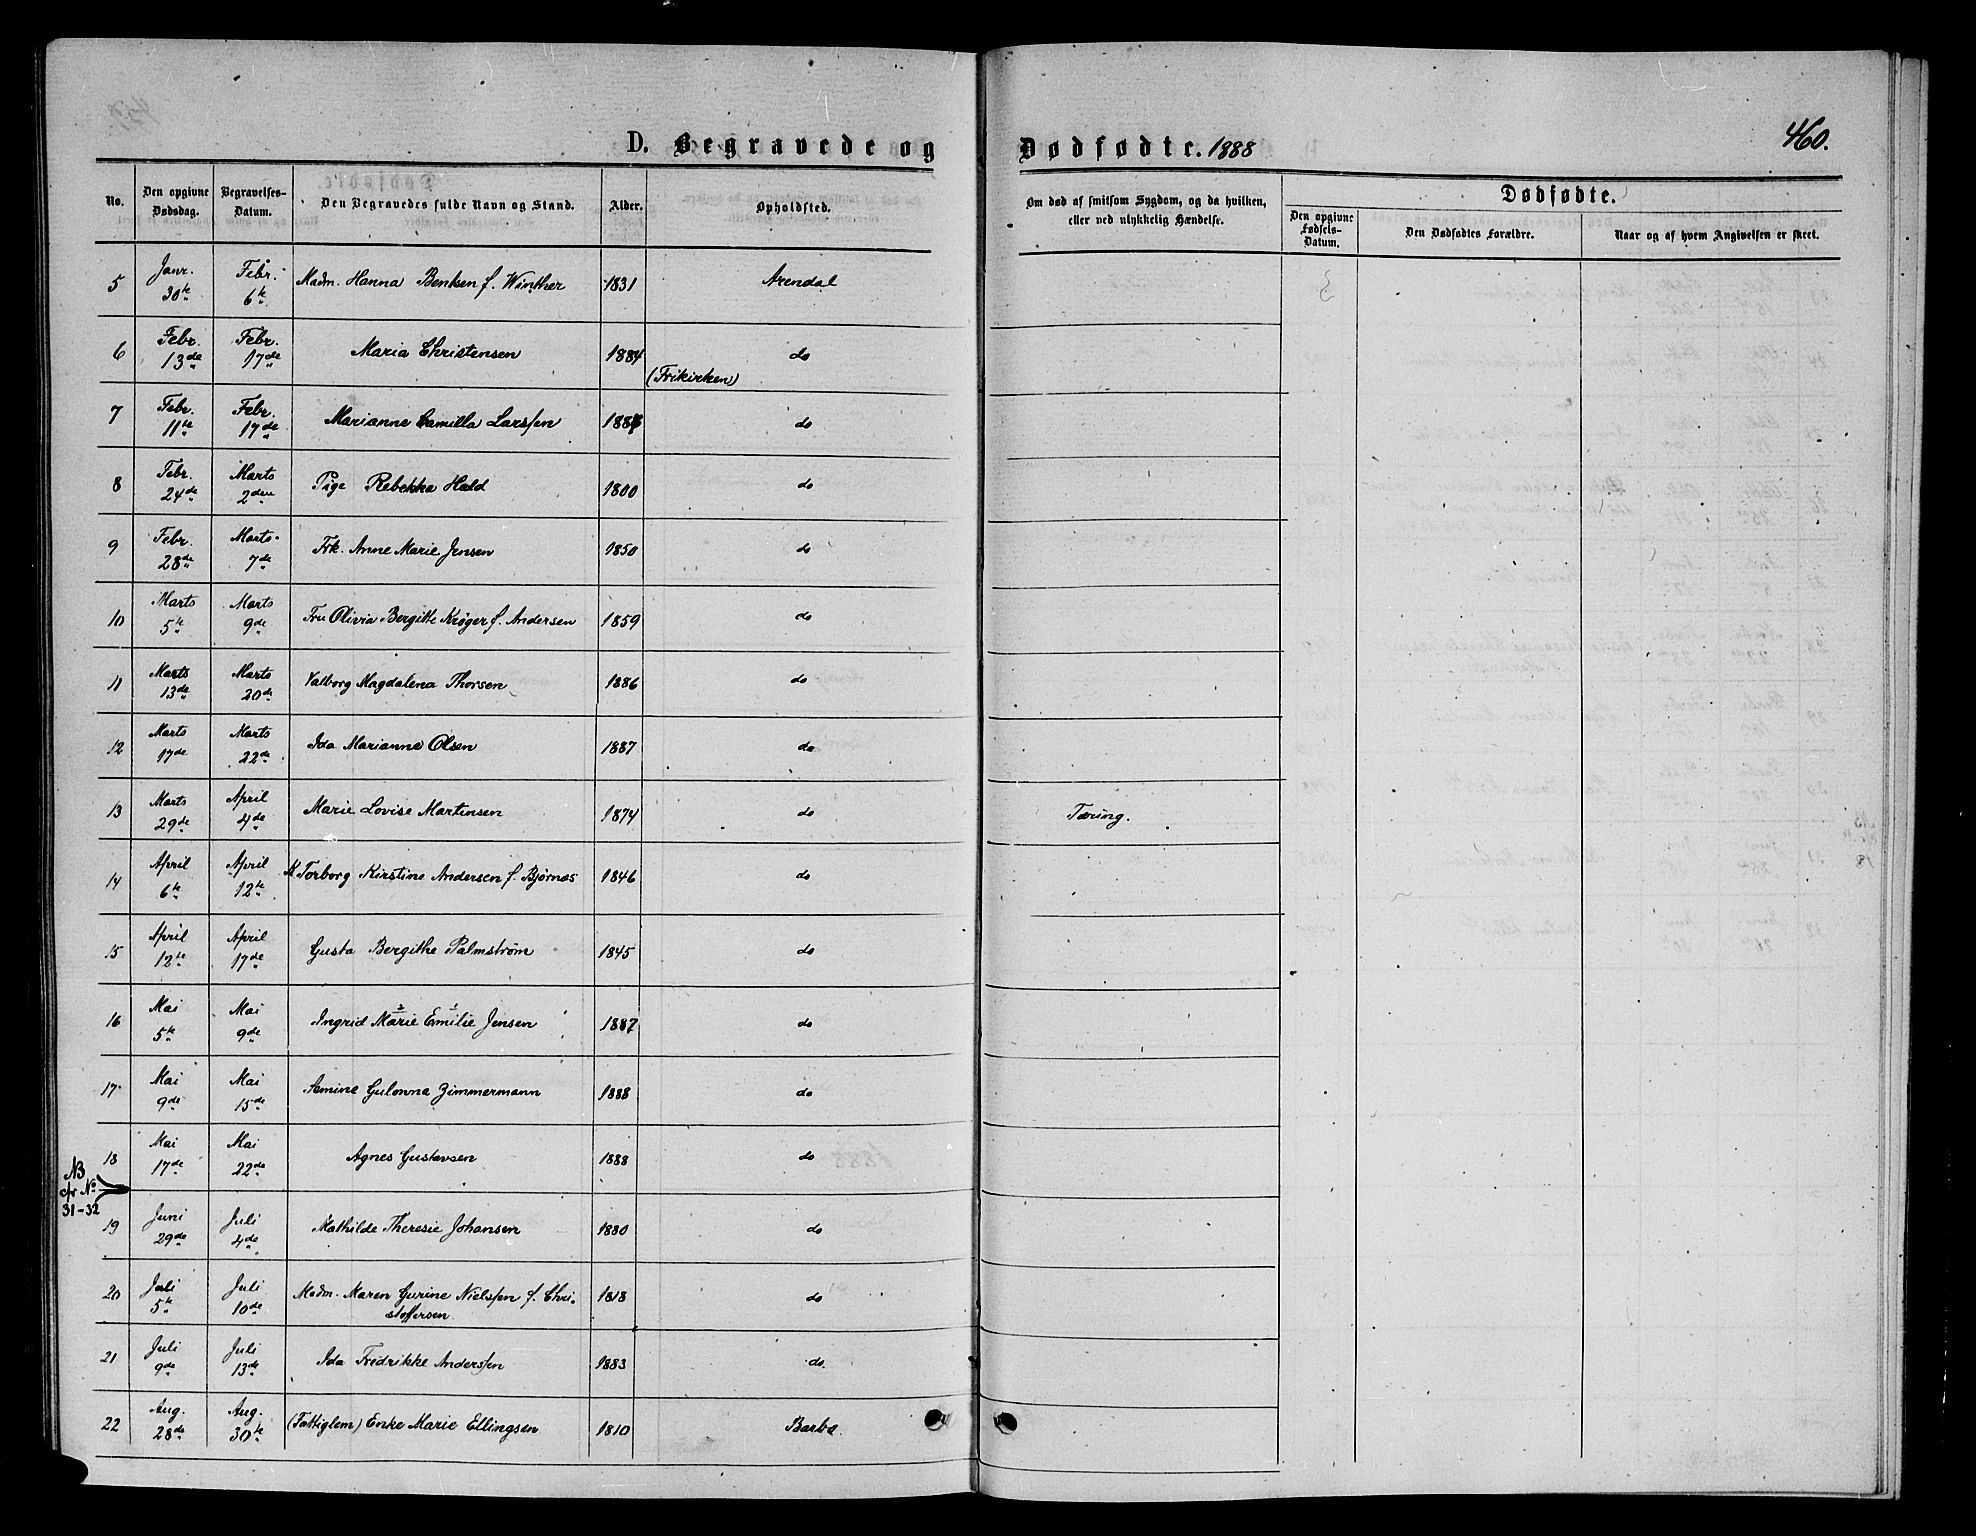 D. Begravede og Dødfødte. 1888
460.
No.
Den opgivne Dødsdag.
Begravelses-Datum.
Den Begravedes fulde Navn og Stand.
Alder.
Opholdsted.
Om død af smitsom Sygdom, og da hvilken,
eller ved ulykkelig Hændelse.
Dødfødte.
Den opgivne Fødsels-Datum.
Den Dødfødtes Forældre.
Naar og af hvem Angivelsen er skeet.
5 Janr. 30te Febr. 6te Madm. Hanna Bentsen f. Winther 1831 Arendal
6 Febr. 13de Febr. 17de Maria Christensen 1884 do
(Frikirken)
7 Febr. 11te Febr. 17de Marianne Camilla Larssen do
8 Febr. 24de Marts 2den Pige Rebekka Hald 1800 do
9 Febr. 28de Marts 7de Frk. Anne Marie Jensen 1850 do
10 Marts 5te Marts 9de Fru Olivia Bergitte Krøger f. Andersen 1859 do
11 Marts 13de Marts 20de Valborg Magdalena Thorsen 1886 do
12 Marts 17de Marts 22de Ida Marianne Olsen 1887 do
13 Marts 29de April 4de Marie Lovise Martinsen 1874 do Tæring.
14 April 6te April 12te K. Torborg Kirstine Andersen f. Bjørnæs 1846 do
15 April 12te April 17de Gusta Bergithe Palmstrøm 1845 do
16 Mai 5te Mai 9de Ingrid Marie Emilie Jensen 1887 do
2 1
17 Mai 9de Mai 15de Semine Gulowna Zimmermann 1888 do
18 Mai 17de Mai 22de Agnes Gustavsen 1888 do
NB
cfr No
31-32
19 Juni 29de Juli 4de Mathilde Theresie Johansen 1880 do
20 Juli 5te Juli 10de Madm. Maren Gurine Nielssen f. Chri-
stoffersen 1818 do
21 Juli 9de Juli 13de Ida Fredrikke Anderssen 1883 do.
22 Aug. 28de Aug. 30te (Fattiglem) Enke Marie Ellingsen 1810 Barbo